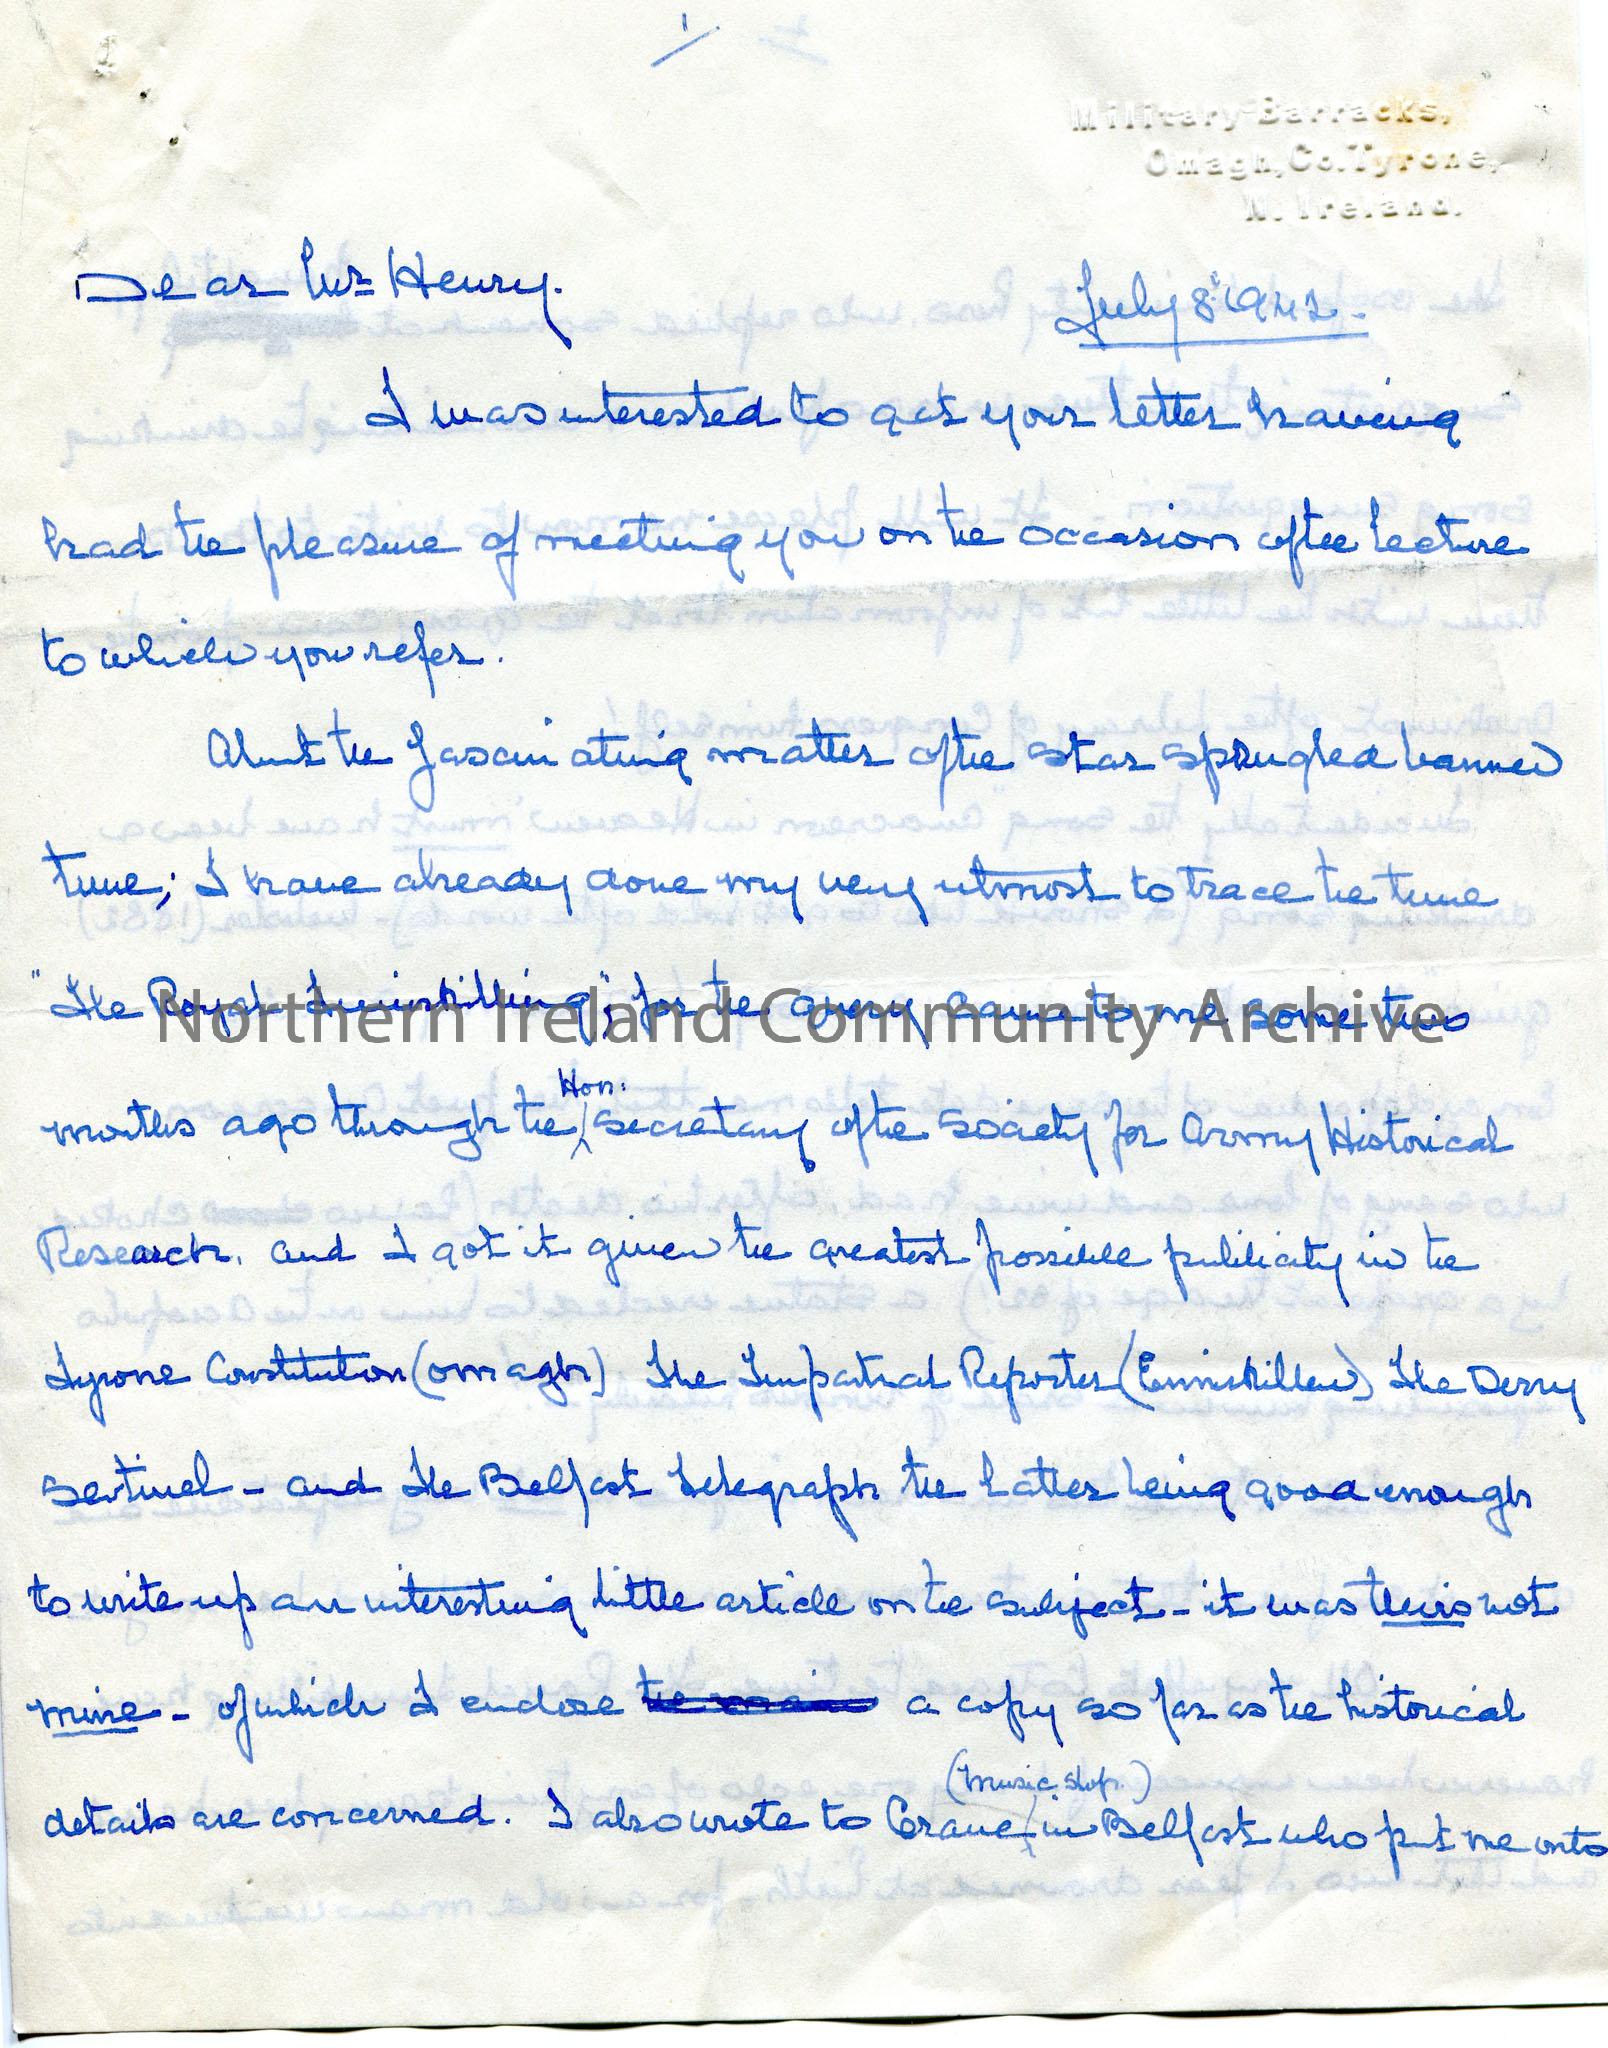 1
Military Barracks,
Omagh, Co. Tyrone,
N. Ireland.
Dear Mr Henry.
July 8th 1942.
I was interested to get your letter having
had the pleasure of meeting you on the occasion of the lecture
to which you refer.
About the fascinating matter of the star spangled banner
tune; I have already done my very utmost to trace the tune
"The Royal Inniskilling", for the query came to me some two
months ago through the Hon. secretary of the society for Army Historical
Research. and I got it given the greatest possible publicity in the
Tyrone Constitution (omagh) The Impartial Reporter (Enniskillen) The Derry
Sentinel - and The Belfast Telegraph the latter being good enough
to write up an interesting little article on the subject - it was theirs not
mine - of which I enclose a copy so far as the historical
details are concerned. I also wrote to Crane (music shop.) in Belfast who put me onto
Northern Ireland Community Archive